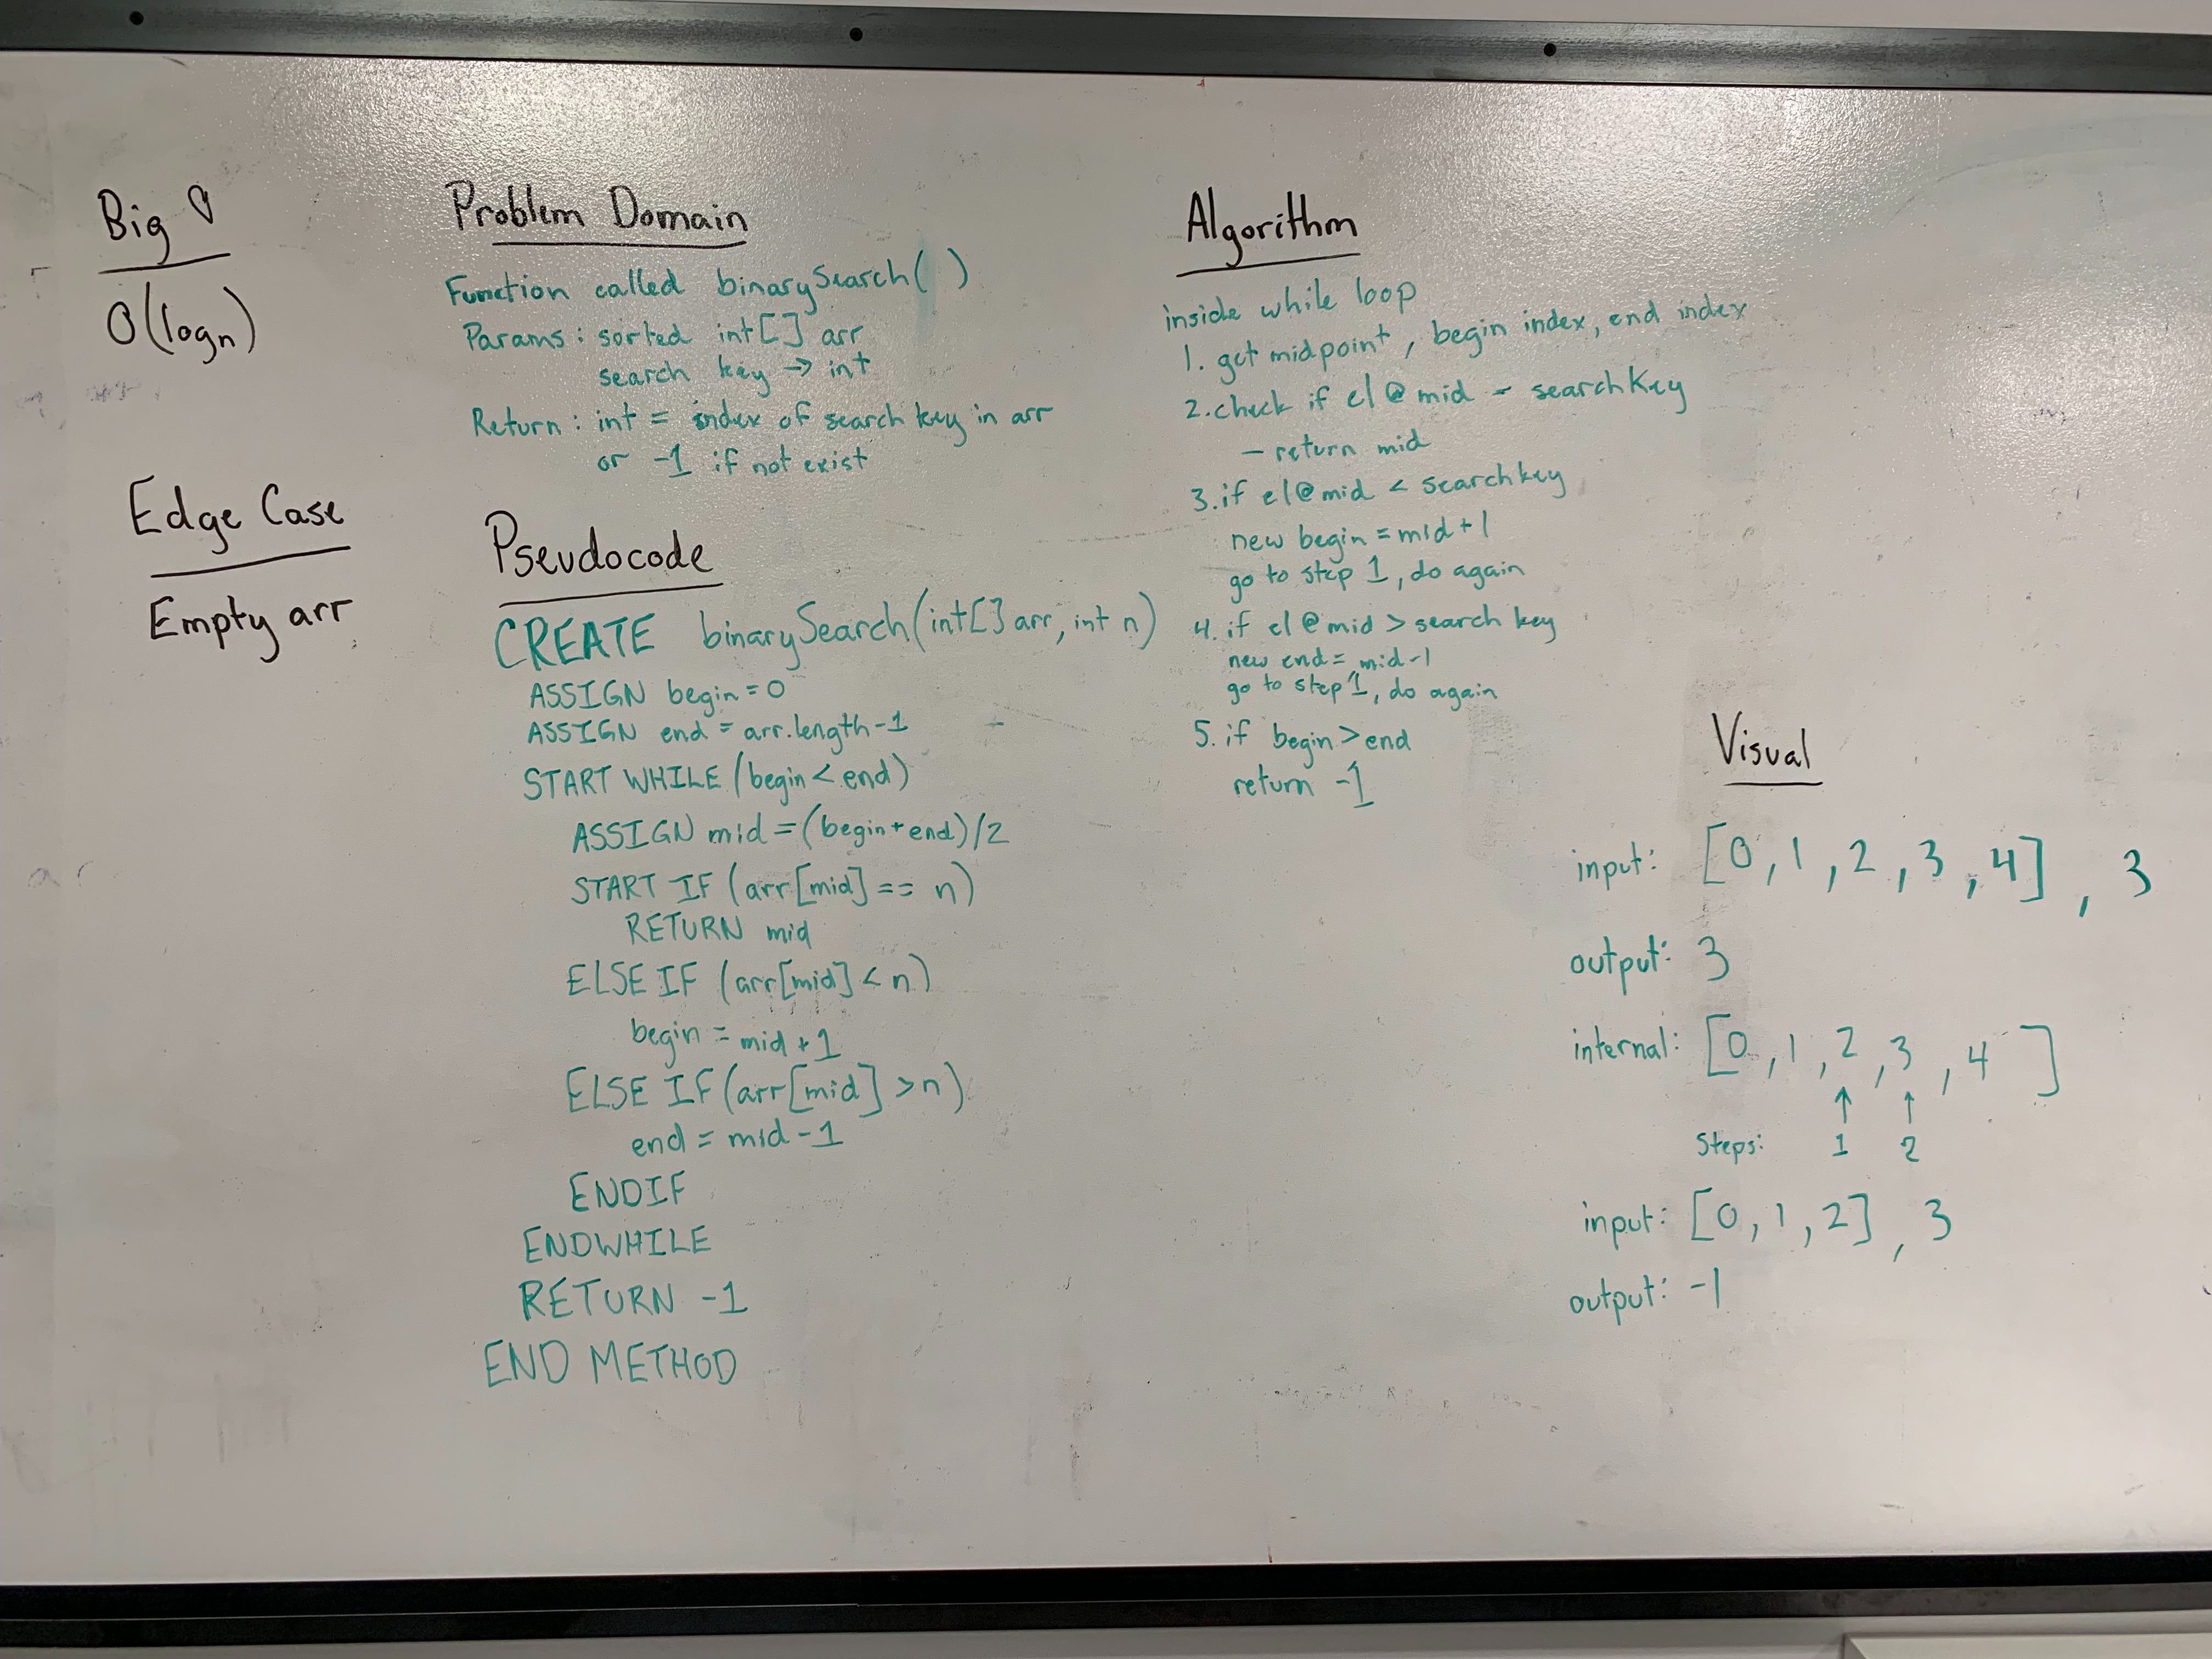 Big O
O(logn)
Edge Case
Empty arr
Problem Domain
Function called binarySearch( )
Params: sorted int[] arr
search key → int
Return: int = index of search key in arr
or -1 if not exist
Pseudocode
CREATE binarySearch(int[] arr, int n)
ASSIGN begin = 0
ASSIGN end = arr.length-1
START WHILE (begin < end)
ASSIGN mid = (begin+end)/2
START IF (arr[mid] == n)
RETURN mid
ELSE IF (arr[mid] < n)
begin = mid + 1
ELSE IF (arr[mid] > n)
end = mid - 1
ENDIF
ENDWHILE
RETURN -1
END METHOD
Algorithm
inside while loop
1. get midpoint, begin index, end index
2. check if el @ mid = searchKey
- return mid
3. if el@mid < searchkey
new begin = mid+1
go to step 1, do again
4. if el @ mid > search key
new end = mid-1
go to step 1, do again
5. if begin > end
return -1
Visual
input: [0, 1, 2, 3, 4], 3
output: 3
internal: [0, 1, 2, 3, 4 ]
↑ ↑
Steps: 1 2
input: [0, 1, 2], 3
output: -1